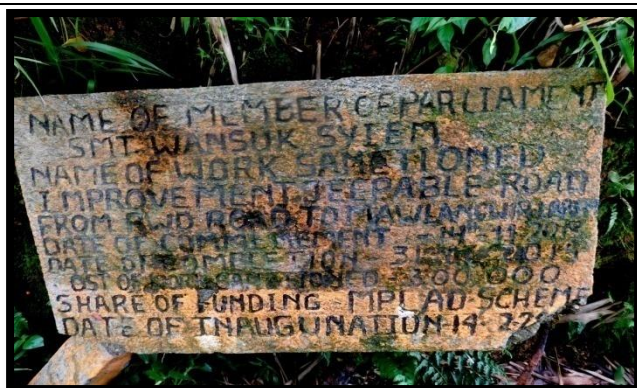 NAME OF MEMBER OF PARLIAMENT
SMT. WANSUK SYIEM
NAME OF WORK SANETIONED
IMPROVEMENT JEEPABLE ROAD
FROM PWD ROAD TO
DATE OF COMMENEMENT - 11
DATE OF COMPLETION - 31
OST OF 300,000
SHARE OF FUNDING - MPLAD SCHEME
DATE OF INAUGUNATIUN-14-2-2